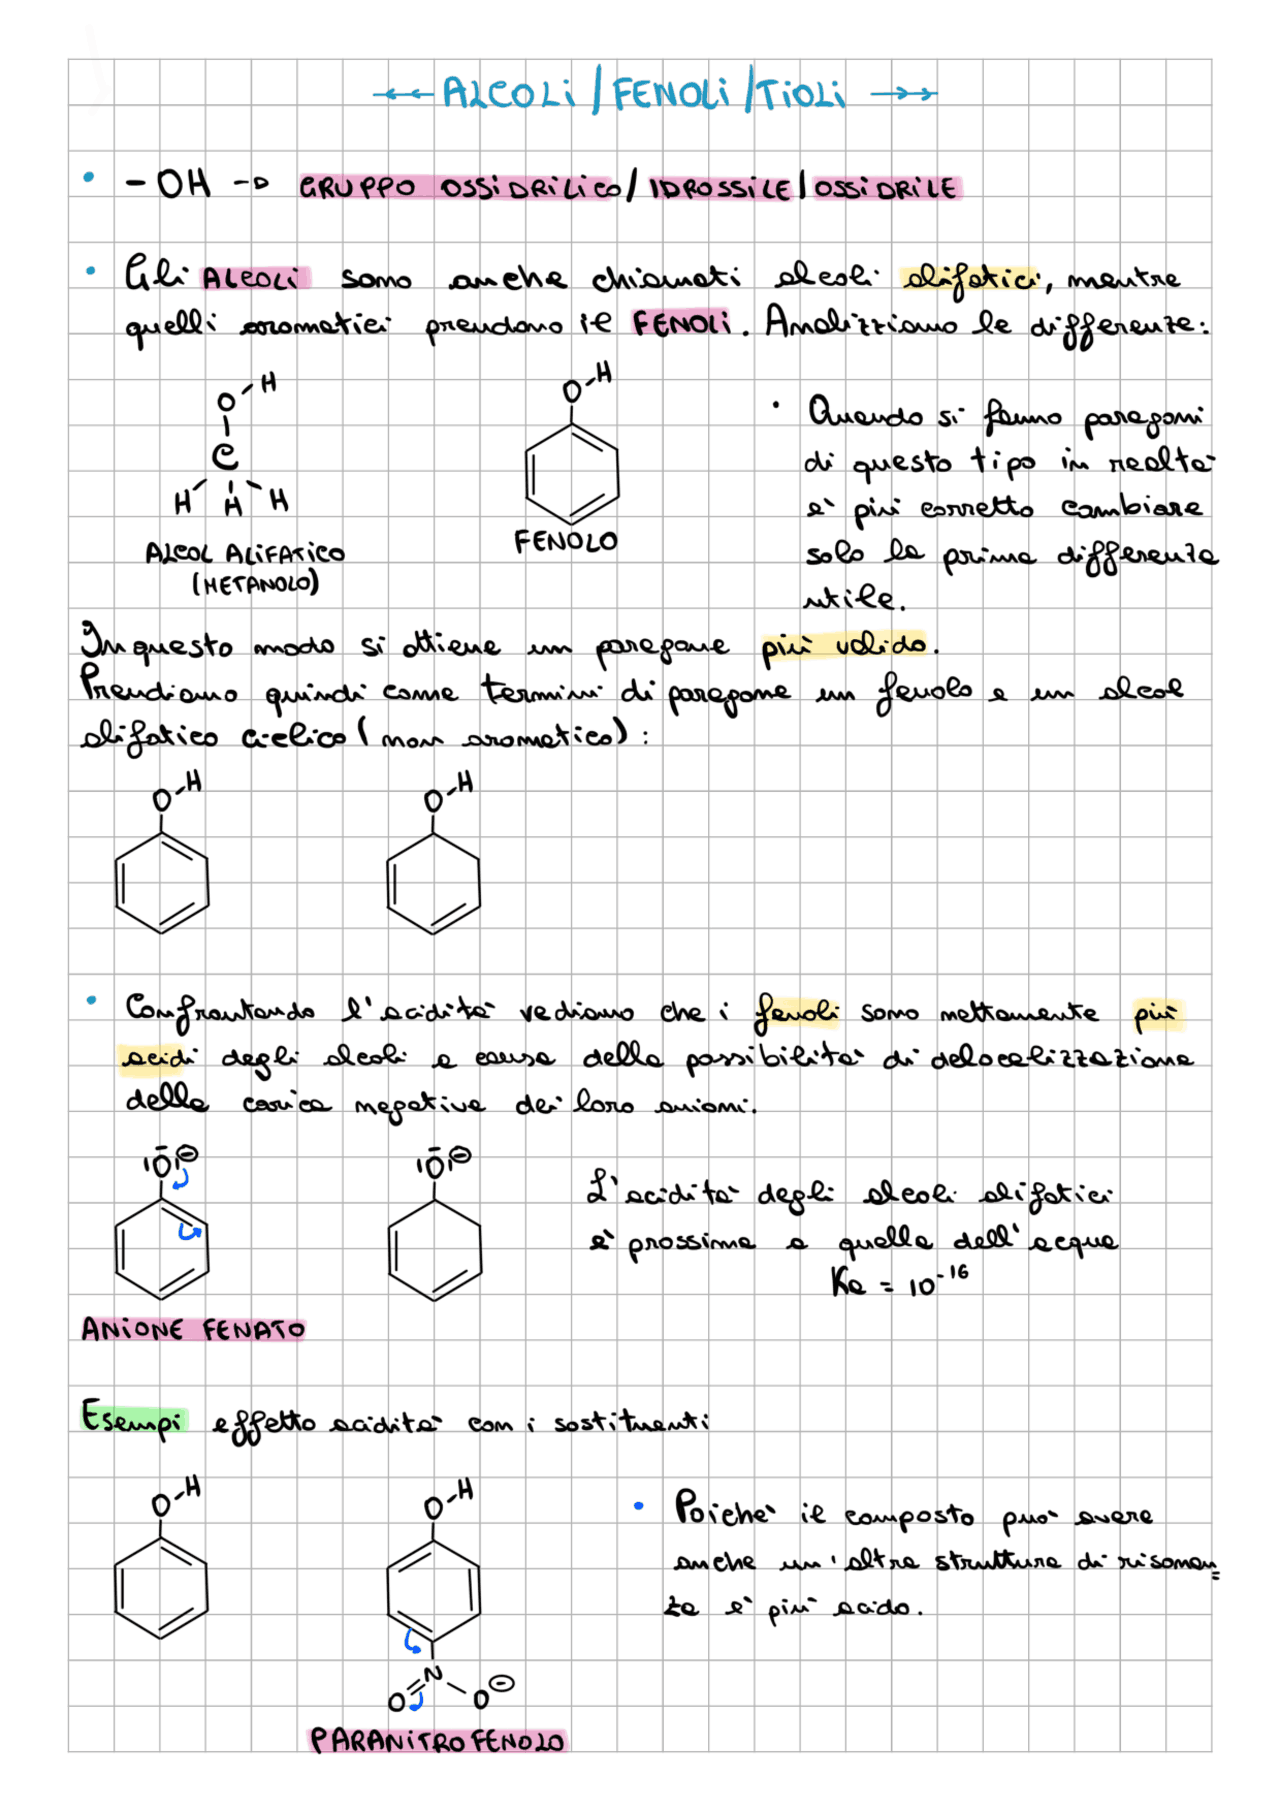 ALCOLI/FENOLI/TIOLI
• -OH -> GRUPPO OSSIDRILICO/IDROSSILE/OSSIDRILE
• Gli ALCOLI sono anche chiamati alcoli alifatici, mentre
quelli aromatici prendono il FENOLI. Analizziamo le differenze:
O-H
C
H H H
ALCOL ALIFATICO
(METANOLO)
O-H
FENOLO
• Quando si fanno paragoni
di questo tipo in realtà
è più corretto cambiare
solo la prima differenza
utile.
In questo modo si ottiene un paragone più valido.
Prendiamo quindi come termini di paragone un fenolo e un alcol
alifatico ciclico (non aromatico):
O-H O-H
• Confrontando l'acidità vediamo che i fenoli sono nettamente più
acidi degli alcoli a causa della possibilità di delocalizzazione
della carica negativa dei loro anioni.
O⊖ O⊖
ANIONE FENATO
L'acidità degli alcoli alifatici
è prossima a quella dell'acqua
Ka = 10⁻¹⁶
Esempi effetto acidità con i sostituenti
O-H O-H
N
O O⊖
PARANITROFENOLO
• Poiché il composto può avere
anche un'altra struttura di risonan=
za è più acido.